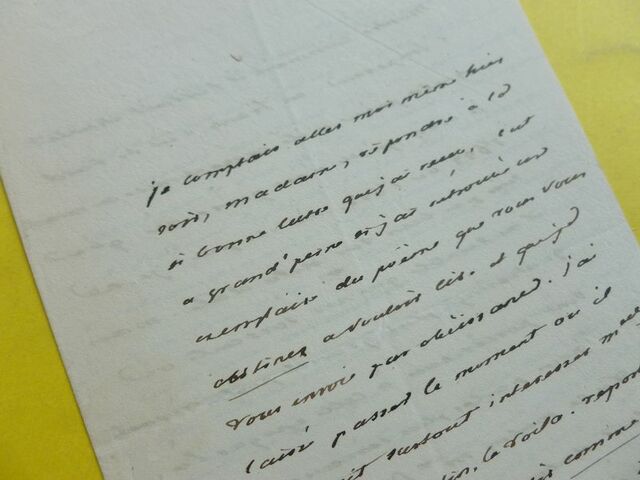 je comptais aller moi même hier
soir, madame, répondre à la
si bonne lettre que j'ai reçu, c'est
a grand' peine si j'ai retrouvé cet
exemplaire du poëme que vous vous
obstinez a vouloir lire, et que je
vous envoie par obéissance. j'ai
laissé passer le moment ou il
surtout interesser
le voila.
comme